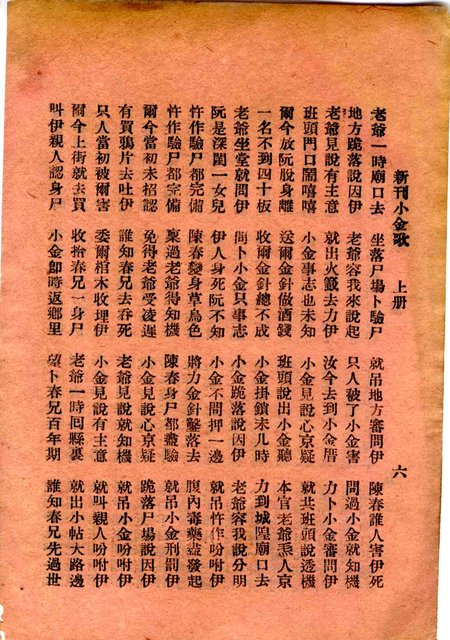 新刊小金歌 上册 六
老爺一時廟口去 坐落尸場卜驗尸 就吊地方審問伊 陳春誰人害伊死
地方跪落說因伊 老爺容我來說起 只人被了小金害 問過小金就知機
老爺見說有主意 就出火籤去力伊 汝今去到小金厝 力卜小金審問伊
班頭門口鬧嘻嘻 小金事志也未知 小金見說心京疑 就共班頭說透機
爾今放阮脫身離 送爾金針做酒錢 班頭說出小金聽 本官老爺炁人京
一名不到四十板 收爾金針總不成 小金掛鎖未几時 力到城隍廟口去
老爺坐堂就問伊 問卜小金只事志 小金跪落說因伊 老爺容我說分明
阮是深閨一女兒 伊人身死阮不知 小金不問押一邊 就吊忤作吩咐伊
忤作驗尸都完備 陳春變身草鳥色 將力金針鑿落去 腹內毒藥盡發起
忤作驗尸都完備 稟過老爺得知機 陳春身尸都盡驗 就吊小金刑罰伊
爾今當初未招認 免得老爺受凌遲 小金見說心京疑 跪落尸場說因伊
有買鴉片去吐伊 誰知春兄去吞死 老爺見說就知機 就吊小金吩咐伊
只人當初被爾害 委爾棺木收埋伊 小金見說有主意 就叫親人吩咐伊
爾今上街就去買 收拾春兄一身尸 老爺一時回縣裏 就出小帖大路邊
叫伊親人認身尸 小金卽時返鄉里 望卜春兄百年期 誰知春兄先過世